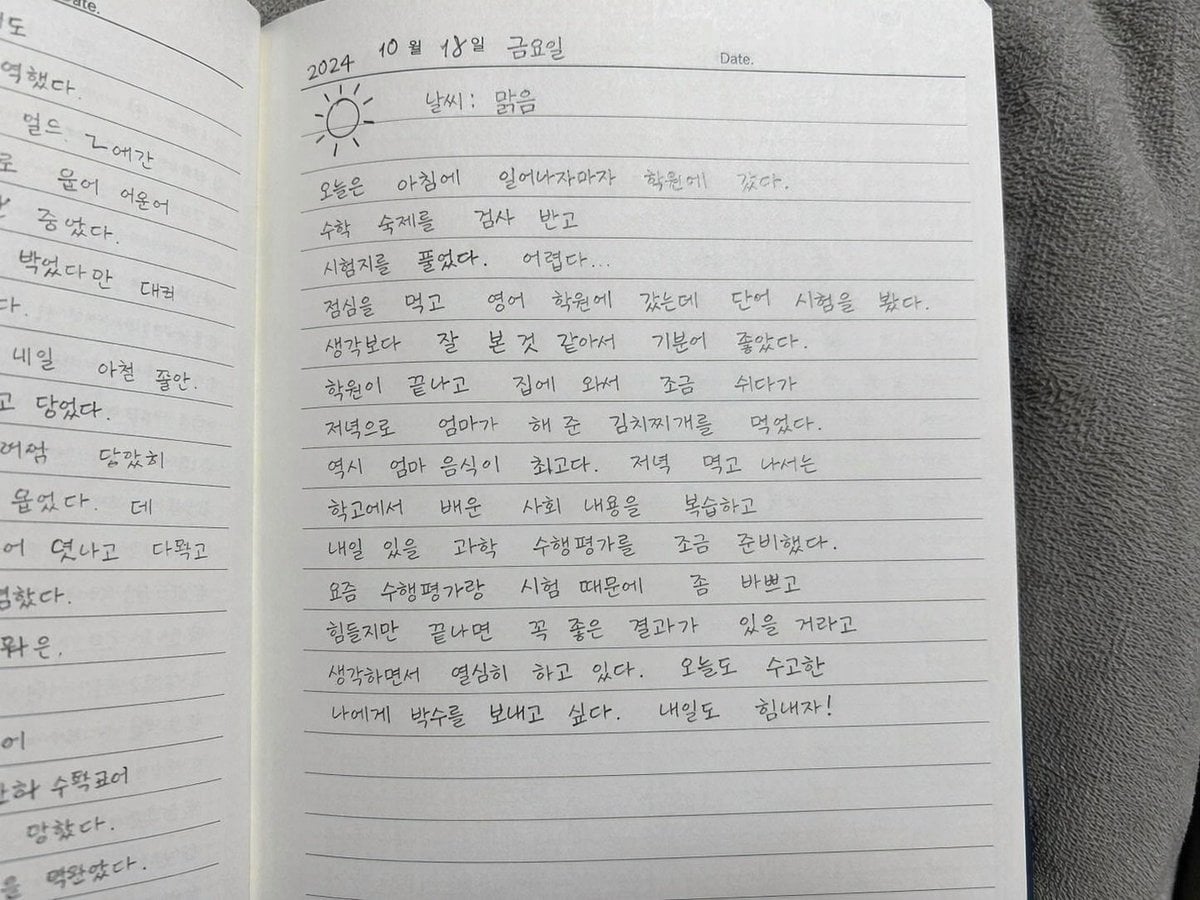 Date.
역했다.
박었다만
다.
내일
고 당었다.
데
어 나고
어
망했다.
2024 10월 18일 금요일
Date.
날씨: 맑음
오늘은 아침에 일어나자마자 학원에 갔다.
수학 숙제를 검사 반고
시험지를 풀었다. 어렵다...
점심을 먹고 영어 학원에 갔는데 단어 시험을 봤다.
생각보다 잘 본 것 같아서 기분어 좋았다.
학원이 끝나고 집에 와서 조금 쉬다가
저녁으로 엄마가 해 준 김치찌개를 먹었다.
역시 엄마 음식이 최고다. 저녁 먹고 나서는
학고에서 배운 사회 내용을 복습하고
내일 있을 과학 수행평가를 조금 준비했다.
요즘 수행평가랑 시험 때문에 좀 바쁘고
힘들지만 끝나면 꼭 좋은 결과가 있을 거라고
생각하면서 열심히 하고 있다. 오늘도 수고한
나에게 박수를 보내고 싶다. 내일도 힘내자!